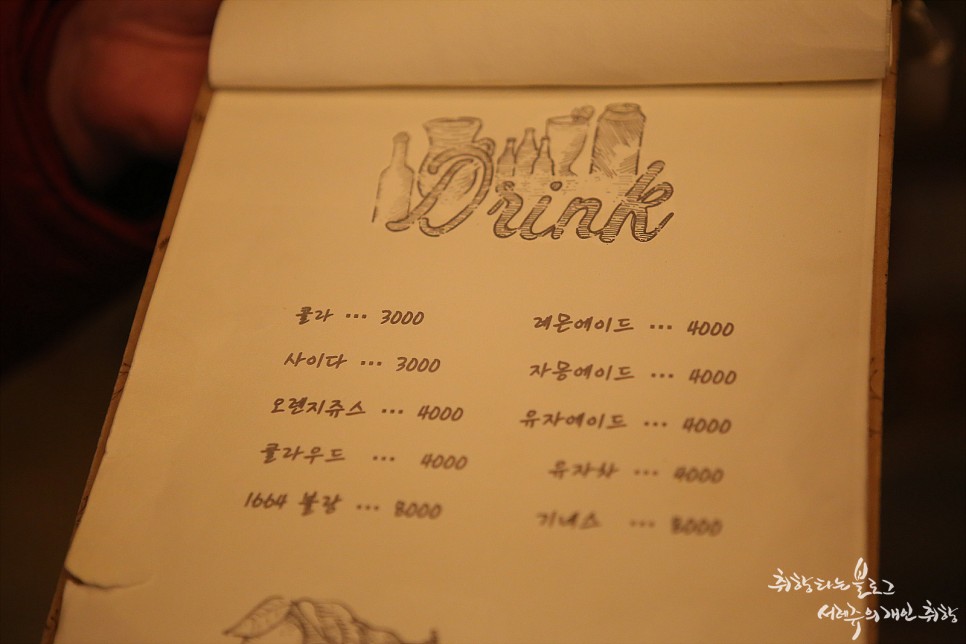 Drink
콜라 ··· 3000
사이다 ··· 3000
오렌지쥬스 ··· 4000
클라우드 ··· 4000
1664 블랑 ··· 8000
레몬에이드 ··· 4000
자몽에이드 ··· 4000
유자에이드 ··· 4000
유자차 ··· 4000
기네스 ··· 8000
취향타는 블로그
서레주의 개인 취향